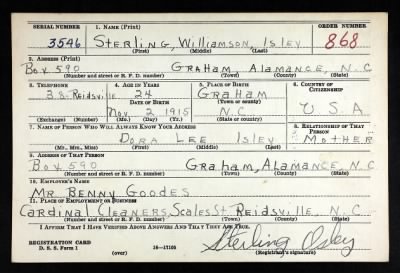 SERIAL NUMBER 1. NAME (Print) ORDER NUMBER
3546 Sterling, Williamson, Isley 868
(First) (Middle) (Last)
2. ADDRESS (Print)
Box 590 Graham, Alamance, N.C
(Number and street or R. F. D. number) (Town) (County) (State)
3. TELEPHONE 4. AGE IN YEARS 5. PLACE OF BIRTH 6. COUNTRY OF CITIZENSHIP
38-Reidsville 24 Graham
DATE OF BIRTH (Town or county)
Nov 2 1915 N.C. U.S.A
(Exchange) (Number) (Mo.) (Day) (Yr.) (State or country)
7. NAME OF PERSON WHO WILL ALWAYS KNOW YOUR ADDRESS 8. RELATIONSHIP OF THAT PERSON
Dora Lee Isley Mother
(Mr., Mrs., Miss) (First) (Middle) (Last)
9. ADDRESS OF THAT PERSON
Box 590 Graham, Alamance, N.C
(Number and street or R. F. D. number) (Town) (County) (State)
10. EMPLOYER'S NAME
Mr. Benny Goodes
11. PLACE OF EMPLOYMENT OR BUSINESS
Cardinal Cleaners, Scales St. Reidsville, N.C.
(Number and street or R. F. D. number) (Town) (County) (State)
I AFFIRM THAT I HAVE VERIFIED ABOVE ANSWERS AND THAT THEY ARE TRUE.
REGISTRATION CARD
D. S. S. Form 1 (over) 16—17105
Sterling Isley
(Registrant's signature)